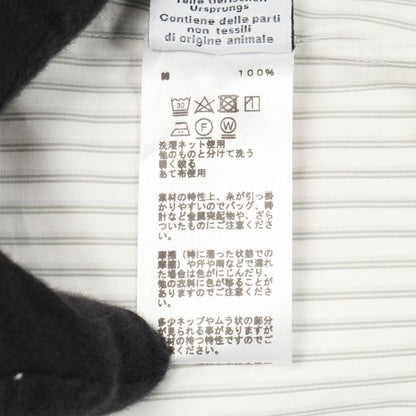 Teile tierischen
Ursprungs
Contiene delle parti
non tessili
di origine animale
綿 100%
30
F W
洗濯ネット使用
他のものと分けて洗う
軽く絞る
あて布使用
素材の特性上、糸が引っ掛
かりやすいのでバッグ、時
計など金属突起物や、ざら
ついたものにご注意くださ
い。
摩擦（特に湿った状態での
摩擦）や汗や雨などで濡れ
た場合は色がにじんだり、
他の衣料に色が移ることが
ありますのでご注意くださ
い。
多少ネップやムラ状の部分
が見られる事がありますが
素材の持つ特性ですのでご
了承ください。